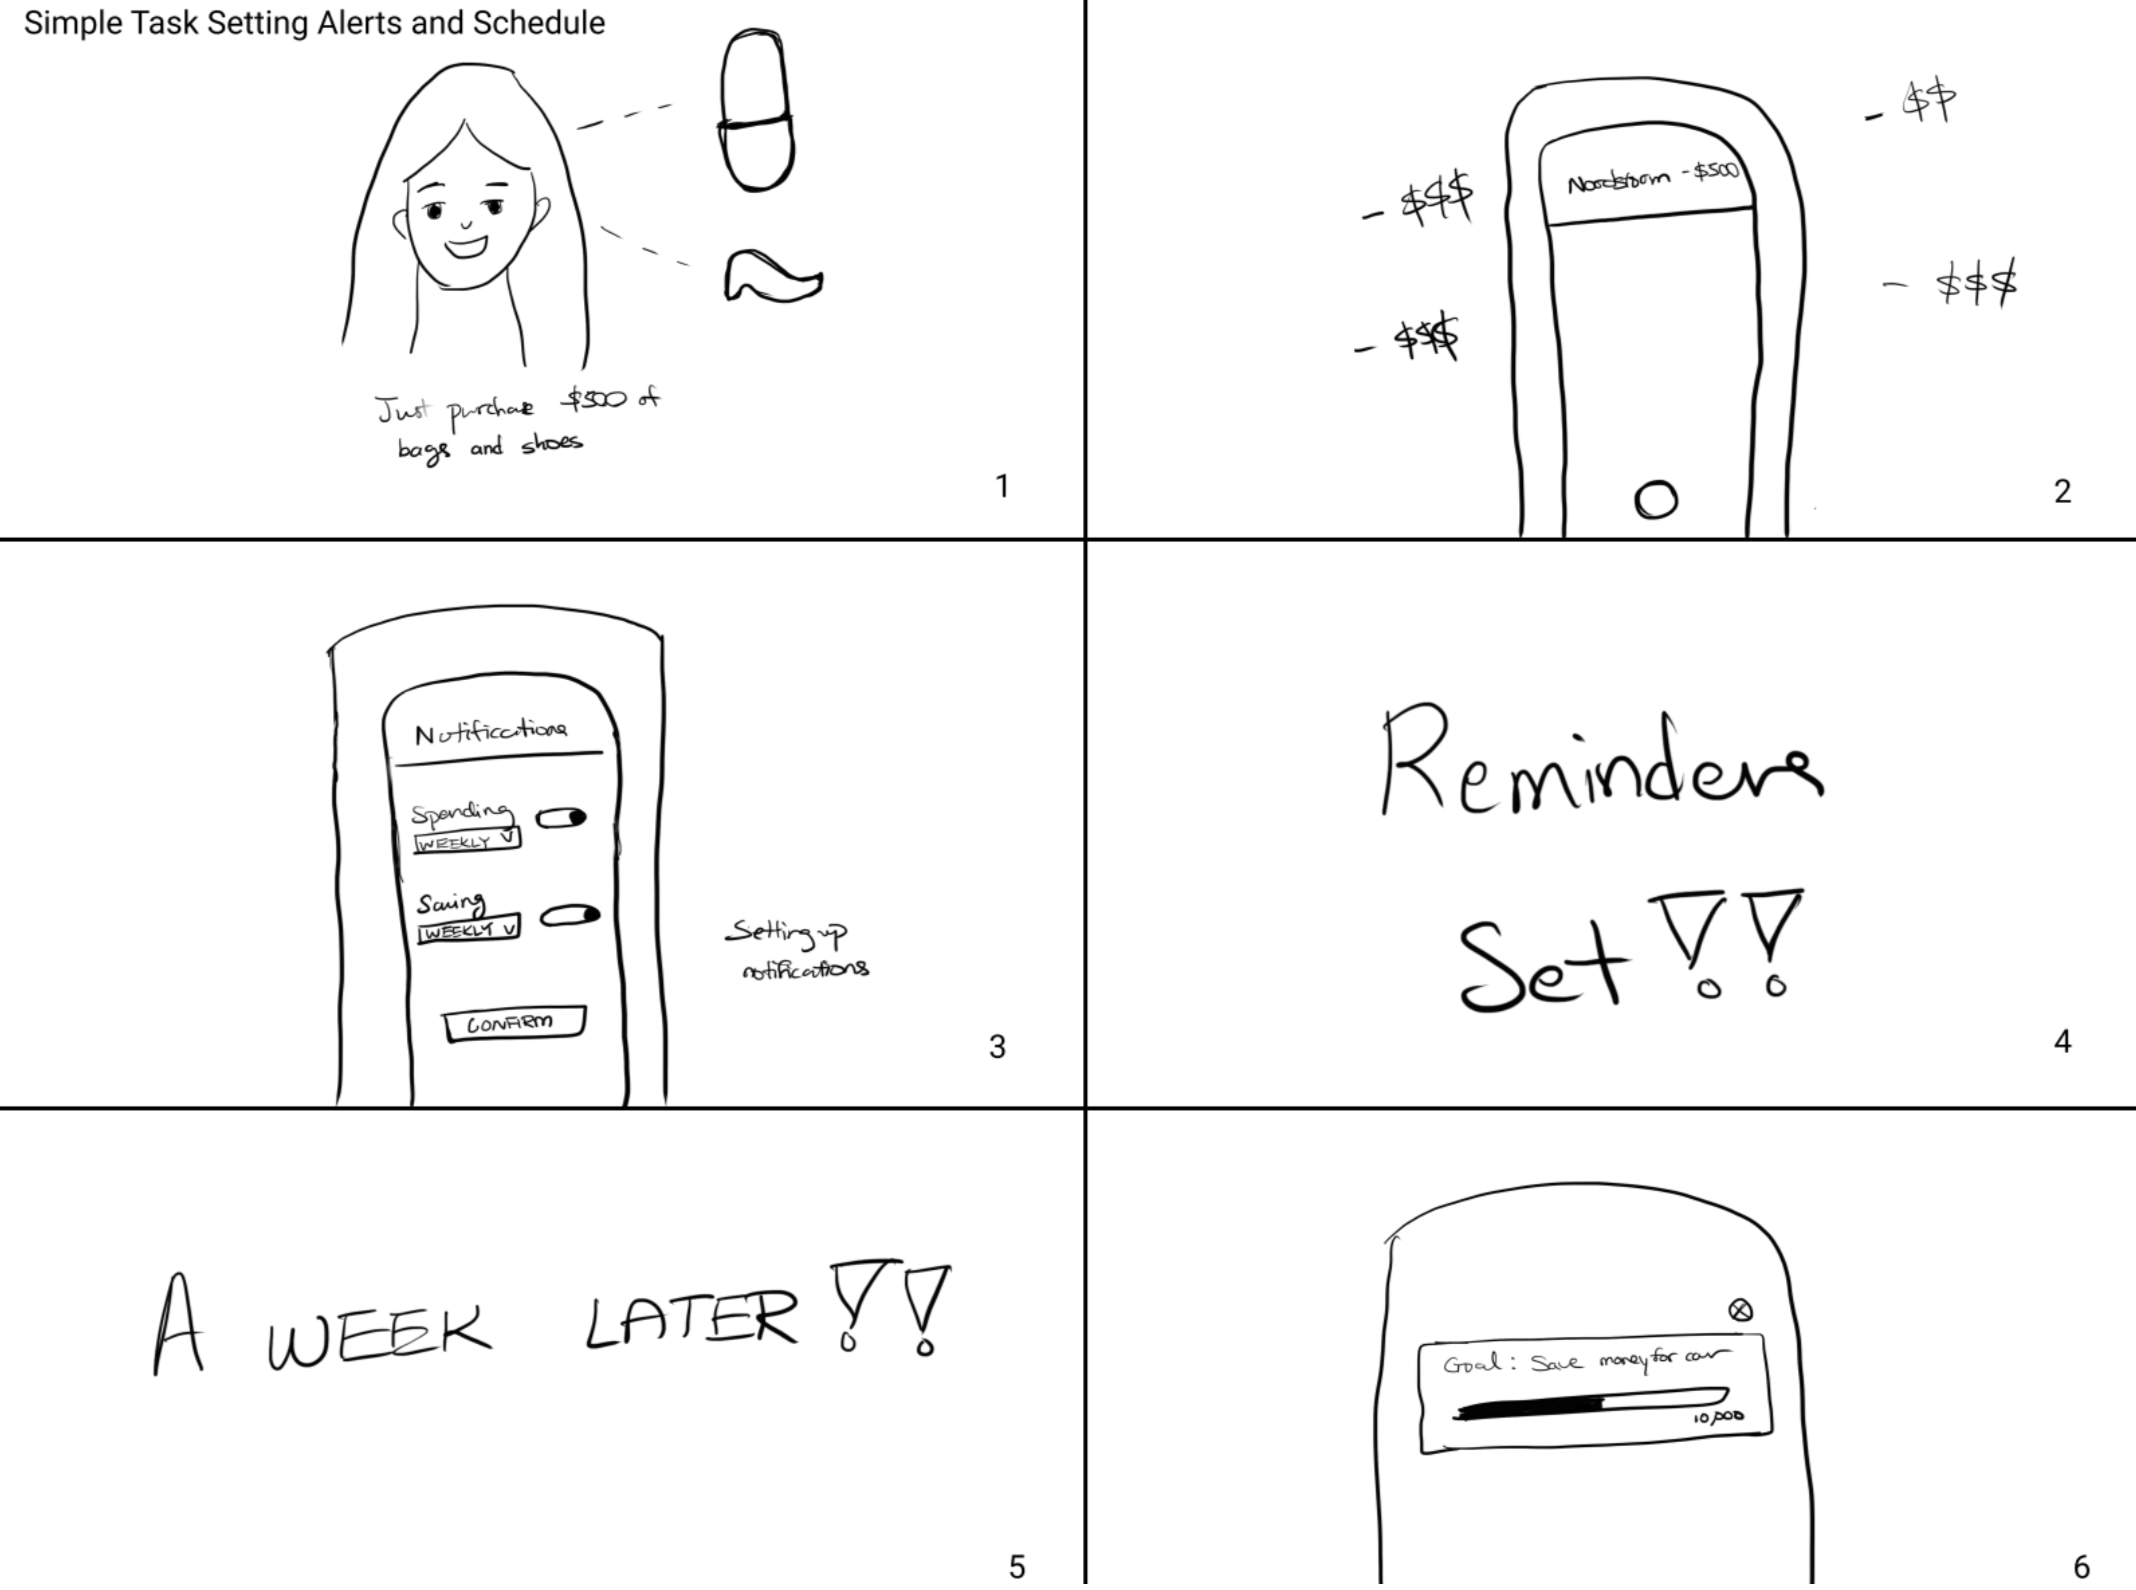 Simple Task Setting Alerts and Schedule
Just purchase $500 of
bags and shoes
1
- $$
Nordstrom - $500
- $$$
- $$$
- $$$
2
Notifications
Spending
WEEKLY V
Saving
WEEKLY V
CONFIRM
Setting up
notifications
3
Reminders
Set!!
4
A WEEK LATER!!
5
Goal: Save money for car
10,000
6